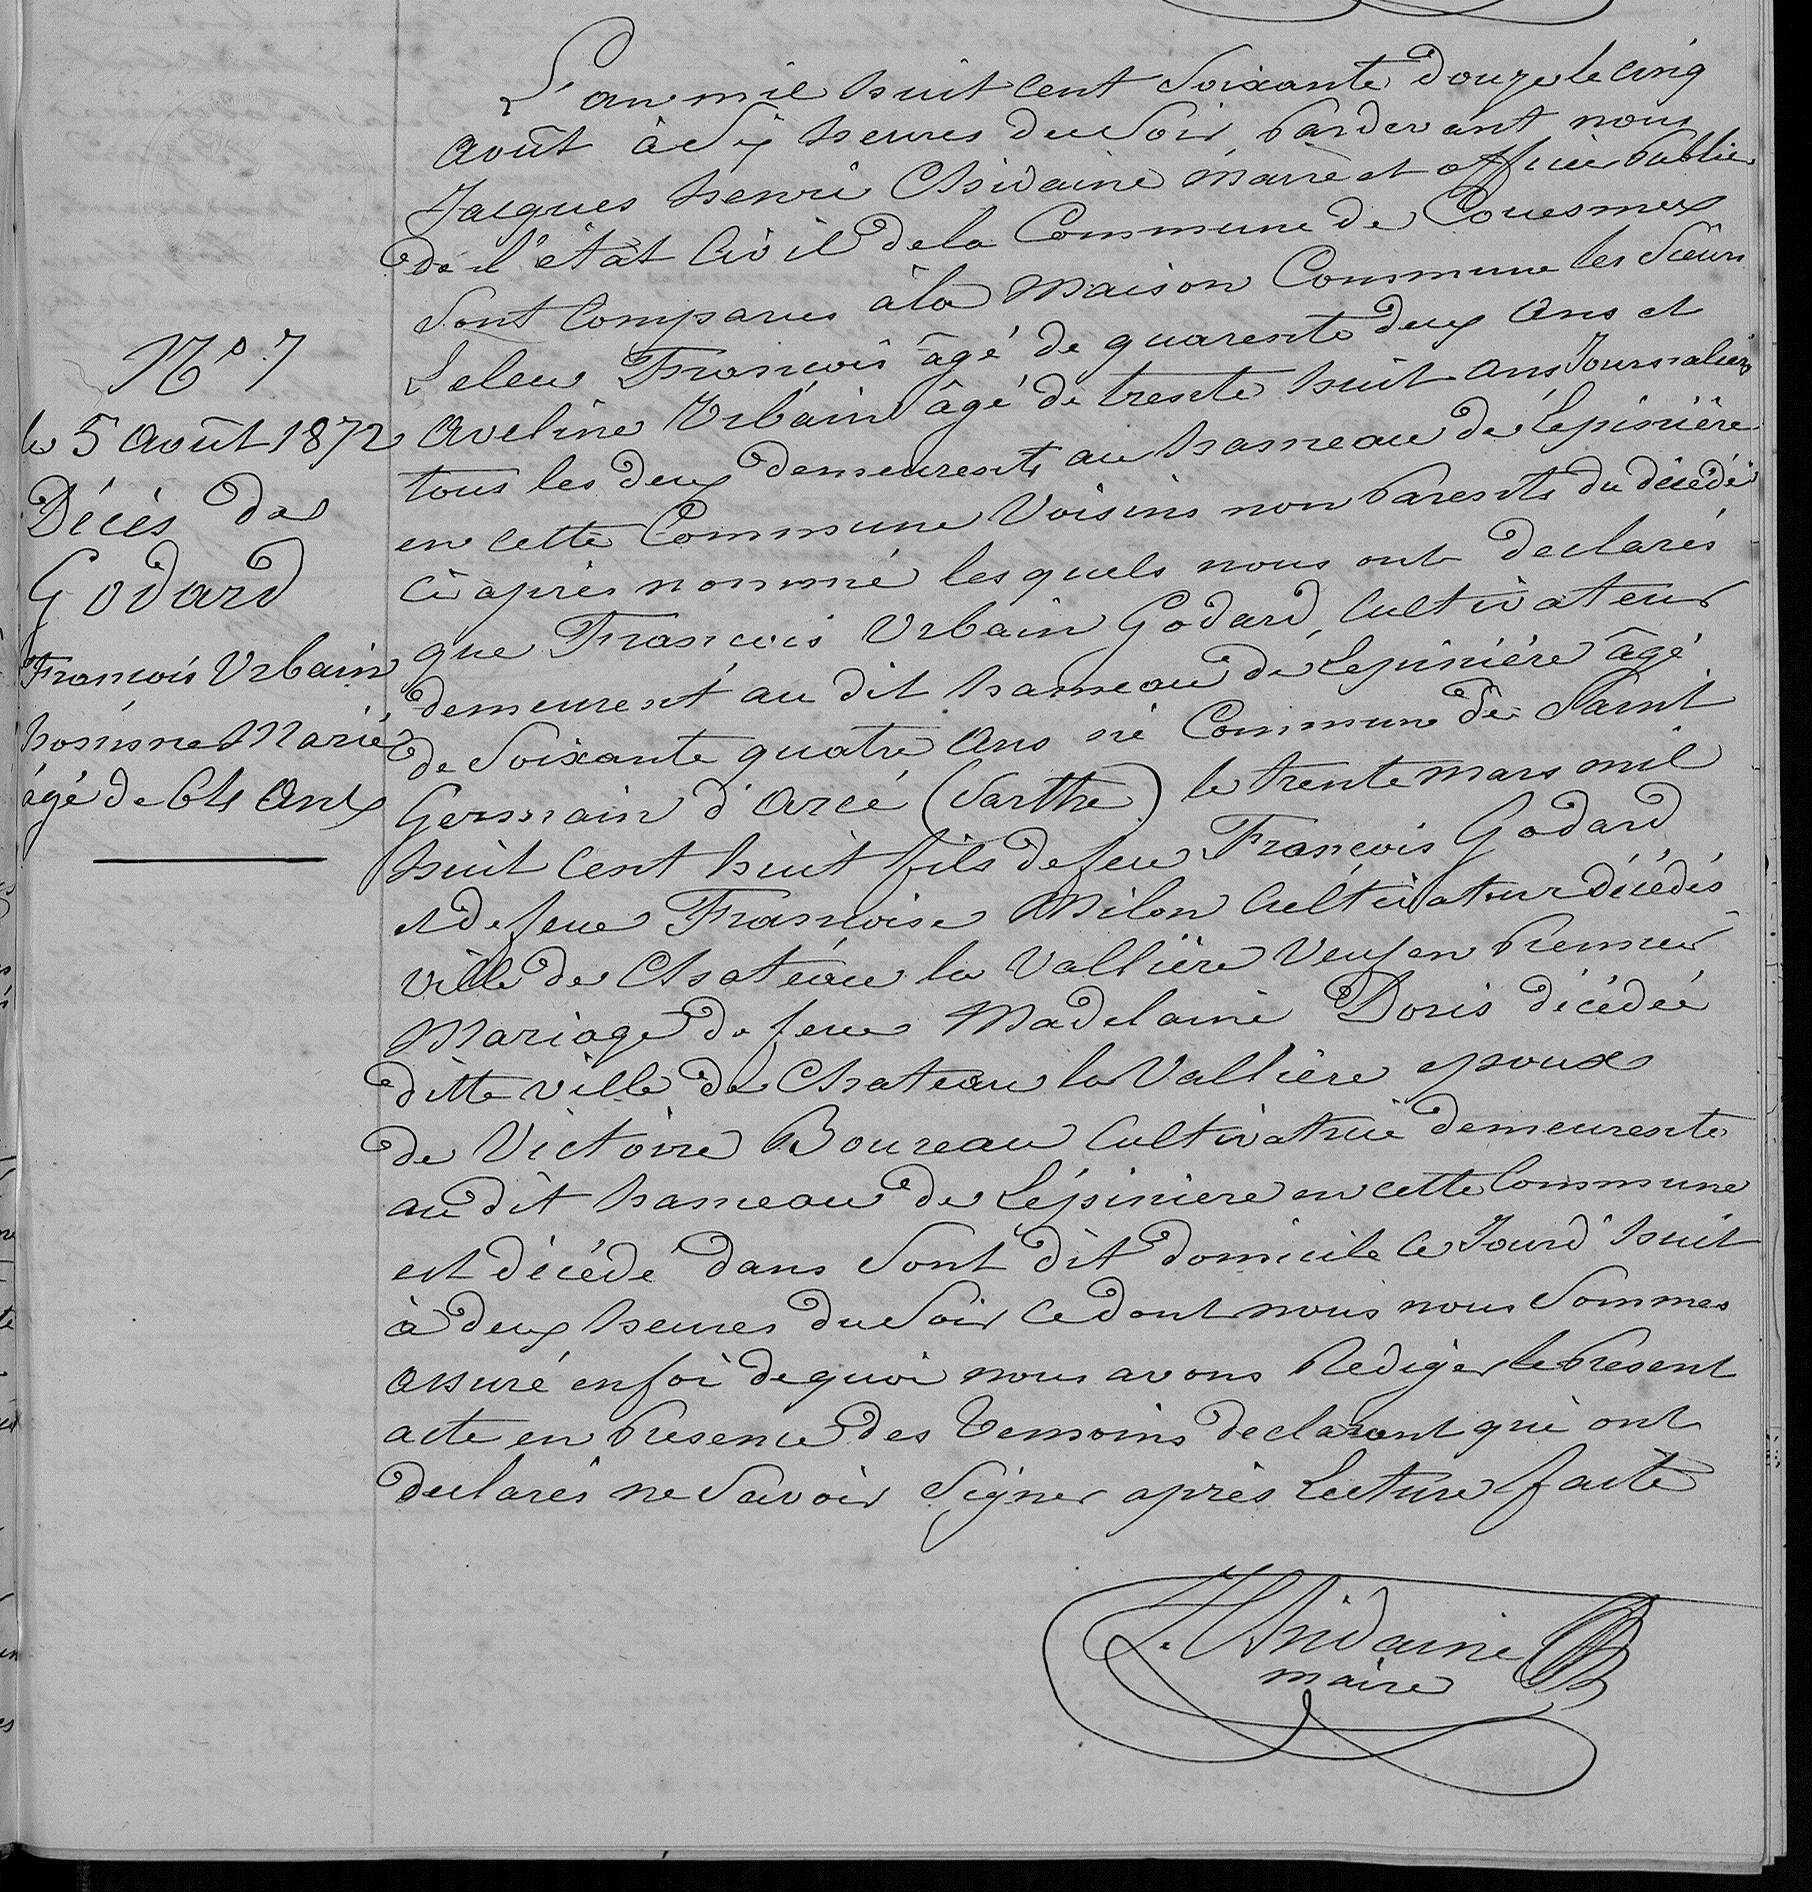 N° 7
le 5 Août 1872
Décès de
Godard
François Urbain
homme Marié
âgé de 64 Ans
L'an mil huit cent Soixante douze le cinq
Août à Six heures du Soir Pardevant nous
Jacques henri Chidaine Maire et officier Public
de l'état Civil de la Commune de Couesmes
Sont Comparus à la Maison Commune les Sieurs
Leleu François âgé de quarente deux Ans et
Aveline Urbain âgé de trente huit Ans Journaliers
tous les deux demeurents au hameau de Lépinière
en cette Commune Voisins non Parents du décédé
ci après nommé lesquels nous ont declarés
que François Urbain Godard, Cultivateur
demeurent au dit hameau de Lépinière âgé
de Soixante quatre Ans né Commune de Saint
Germain d'Arcé (Sarthe) le trente mars mil
huit Cent huit fils de feu François Godard
et de feue Françoise Milon Cultivateur décédés
ville de Chateau la Vallière Veuf en Premier
Mariage de feue Madelaine Doris décédée
ditte ville de Chateau la Vallière epoux
de Victoire Boureau Cultivatrice demeurente
au dit hameau de Lépiniere en cette Commune
est décédé dans Sont dit domicile Ce Jourd'huit
à deux heures du Soir Ce dont nous nous Sommes
assuré en foi de quoi nous avons Rediger le Présent
acte en Présence des Temoins declarant qui ont
declarés ne Savoir Signer après Lecture faite
Chidaine
maire